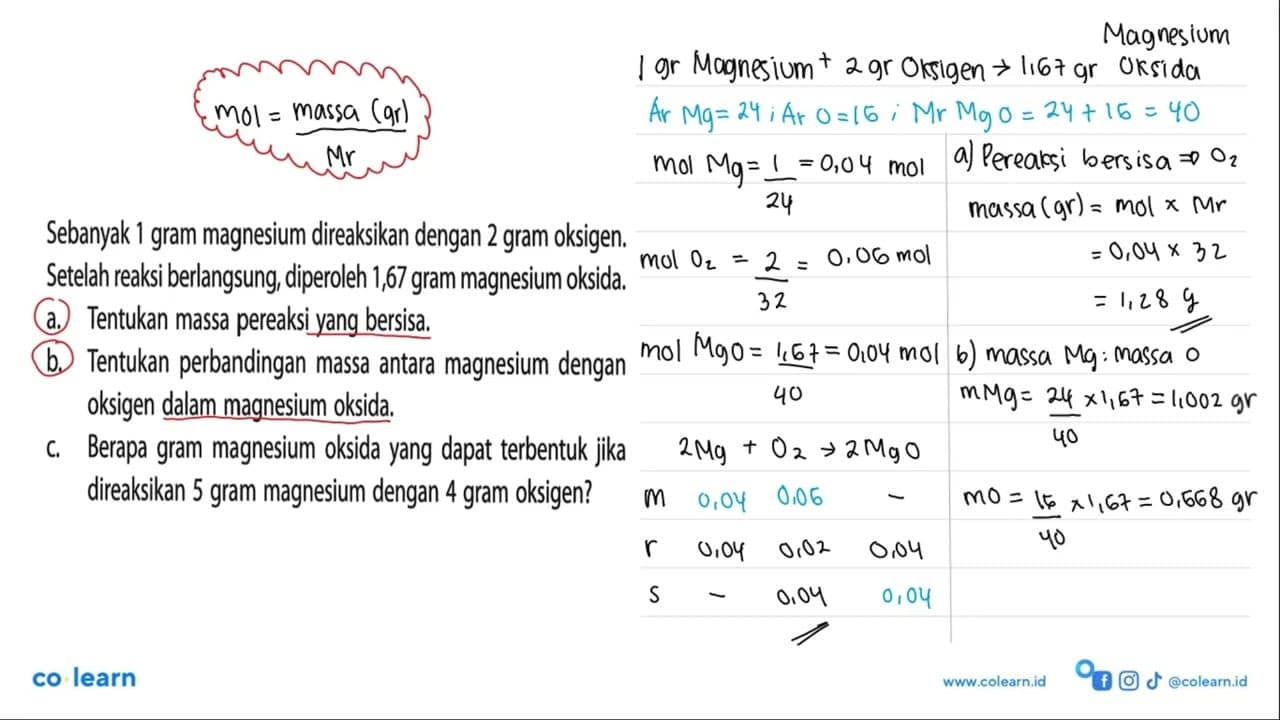 mol = massa (gr)
Mr
Sebanyak 1 gram magnesium direaksikan dengan 2 gram oksigen.
Setelah reaksi berlangsung, diperoleh 1,67 gram magnesium oksida.
a. Tentukan massa pereaksi yang bersisa.
b. Tentukan perbandingan massa antara magnesium dengan
oksigen dalam magnesium oksida.
c. Berapa gram magnesium oksida yang dapat terbentuk jika
direaksikan 5 gram magnesium dengan 4 gram oksigen?
Magnesium
1 gr Magnesium + 2 gr Oksigen → 1,67 gr Oksida
Ar Mg = 24 ; Ar O = 16 ; Mr MgO = 24 + 16 = 40
mol Mg = 1 = 0,04 mol
24
mol O2 = 2 = 0,06 mol
32
mol MgO = 1,67 = 0,04 mol
40
2Mg + O2 → 2MgO
m 0,04 0,06 -
r 0,04 0,02 0,04
s - 0,04 0,04
a) Pereaksi bersisa ⇒ O2
massa (gr) = mol x Mr
= 0,04 x 32
= 1,28 g
b) massa Mg : massa O
mMg = 24 x 1,67 = 1,002 gr
40
mO = 16 x 1,67 = 0,668 gr
40
co learn
www.colearn.id
@colearn.id